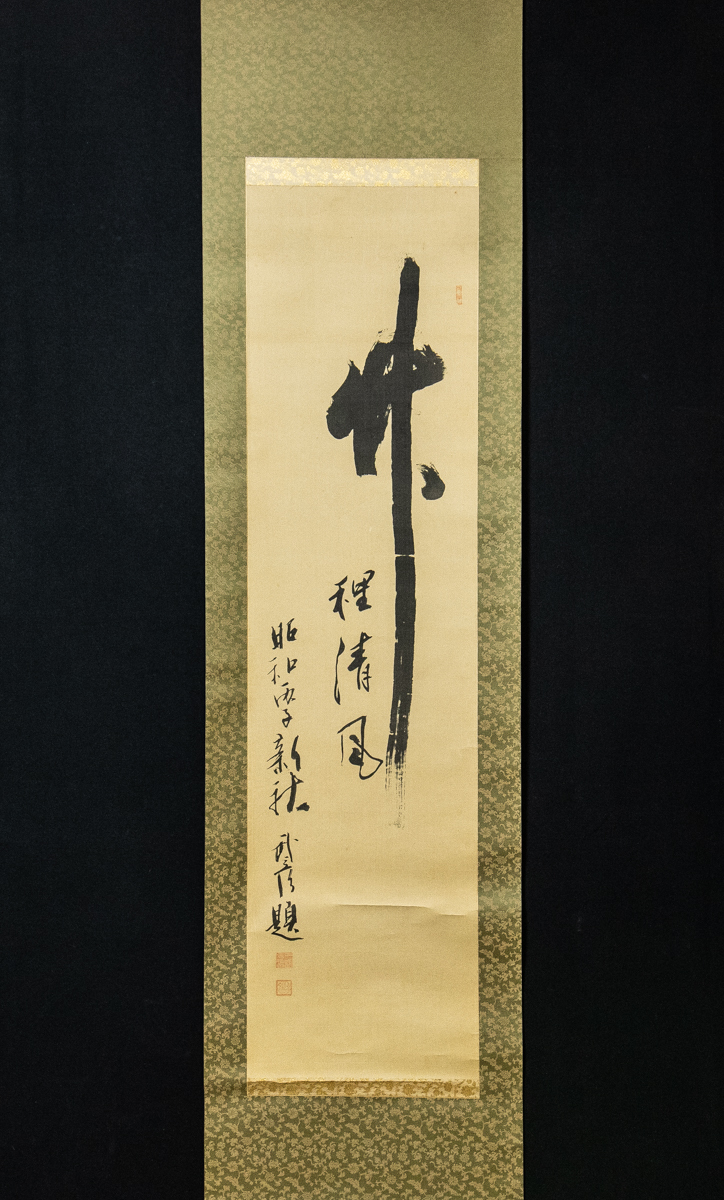 竹
裡清風
昭和丙子新秋 題